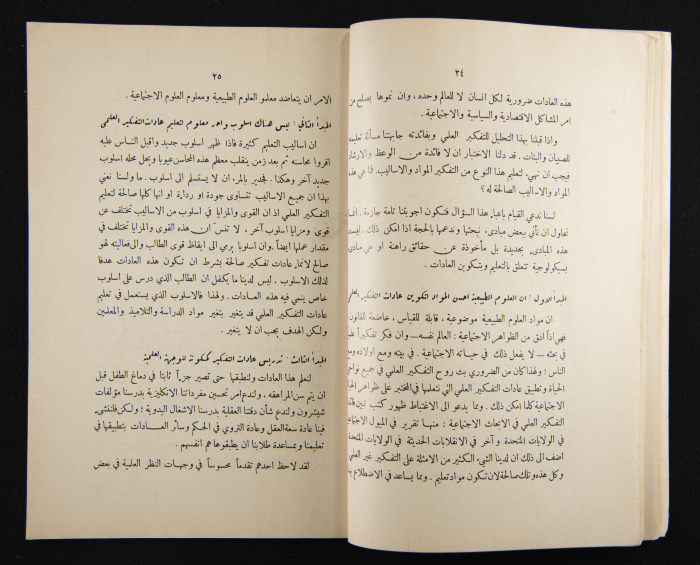 ٢٤
هذه العادات ضرورية لكل انسان لا للعالم وحده، وان نموها يصلح من
امر المشاكل الاقتصادية والسياسية والاجتماعية.
واذا قبلنا بهذا التحليل للتفكير العلمي وبفائدته جابهتنا مسألة تعليمه
للصبيان والبنات. قد دلنا الاختبار ان لا فائدة من الوعظ والارشاد
فيجب ان نهيئ لتعليم هذا النوع من التفكير المواد والاساليب. فما هي هذه
المواد والاساليب الصالحة له؟
لسنا ندعي القيام باعباء هذا السؤال فتكون اجوبتنا تامة جازمة.
نحاول ان نأتي ببعض مبادئ، نبحثها وندعمها بالحجة اذا امكن ذلك. ليست
هذه المبادئ بجديدة بل مأخوذة عن حقائق راهنة او هي مبادئ
بسيكولوجية تتعلق بالتعليم وبتكوين العادات.
المبدأ الاول: ان العلوم الطبيعية احسن المواد لتكوين عادات التفكير العلمي
ان مواد العلوم الطبيعية موضوعية، قابلة للقياس، خاضعة للقانون
فهي اذاً ادق من الظواهر الاجتماعية: العالم نفسه — وان فكر تفكيراً علمياً
في بحثه — لا يفعل ذلك في حياته الاجتماعية. في بيته ومع اولاده ومع
الناس: ولهذا كان من الضروري بث روح التفكير العلمي في جميع نواحي
الحياة وتطبيق عادات التفكير العلمي التي نتعلمها في المختبر على ظواهر الحياة
الاجتماعية كلما امكن ذلك. ومما يدعو الى الاغتباط ظهور كتب تبين فائدة
التفكير العلمي في الابحاث الاجتماعية: منها تقرير في الميول الاجتماعية
في الولايات المتحدة وآخر في الانقلابات الحديثة في الولايات المتحدة
اضف الى ذلك ان لدينا الشيء الكثير من الامثلة على التفكير غير العلمي
وكل هذه وتلك صالحة لان تكون مواد تعليم. ومما يساعد في الاضطلاع بهذا
٢٥
الامر ان يتعاضد معلمو العلوم الطبيعية ومعلمو العلوم الاجتماعية.
المبدأ الثاني: ليس هناك اسلوب واحد معلوم لتعليم عادات التفكير العلمي
ان اساليب التعليم كثيرة فاذا ظهر اسلوب جديد واقبل الناس عليه
اقروا محاسنه ثم بعد زمن ينقلب معظم هذه المحاسن عيوبا ويحل محله اسلوب
جديد آخر وهكذا. فجدير بالمرء ان لا يستسلم الى اسلوب ما ولسنا نعني
بهذا ان جميع الاساليب تتساوى جودة او رداءة او انها كلها صالحة لتعليم
التفكير العلمي اذ ان القوى والمزايا في اسلوب من الاساليب تختلف عن
قوى ومزايا اسلوب آخر. لا تنس ان هذه القوى والمزايا تختلف في
مقدار عملها ايضاً. وان اسلوبا يرمي الى ايقاظ قوى الطالب والى فعاليته لهو
صالح لانماء عادات تفكير صالحة بشرط ان تكون هذه العادات هدفا
لذلك الاسلوب. ليس لدينا ما يكفل ان الطالب الذي درس على اسلوب
خاص ينمي فيه هذه العادات. ولهذا فالاسلوب الذي يستعمل في تعليم
عادات التفكير العلمي قد يتغير بتغير مواد الدراسة والتلاميذ والمعلمين
ولكن الهدف يجب ان لا يتغير.
المبدأ الثالث: تدريس عادات التفكير كمكونة للوجهة العلمية
لنعلم هذا العادات ولنطبقها حتى تصير جزءاً ثابتا في دماغ الطفل قبل
ان يتم سن المراهقة. ولندع امر تحسين مفرداتنا الانكليزية بدرسنا مؤلفات
شيشرون ولندع شأن دقتنا العقلية بدرسنا الاشغال اليدوية؛ ولكن فلننشئ
فينا عادة سعة العقل وعادة التروي في الحكم وسائر العادات بتطبيقها في
تعليمنا وبمساعدة طلابنا ان يطبقوها هم انفسهم.
لقد لاحظ احدهم تقدماً محسوساً في وجهات النظر العلمية في بعض